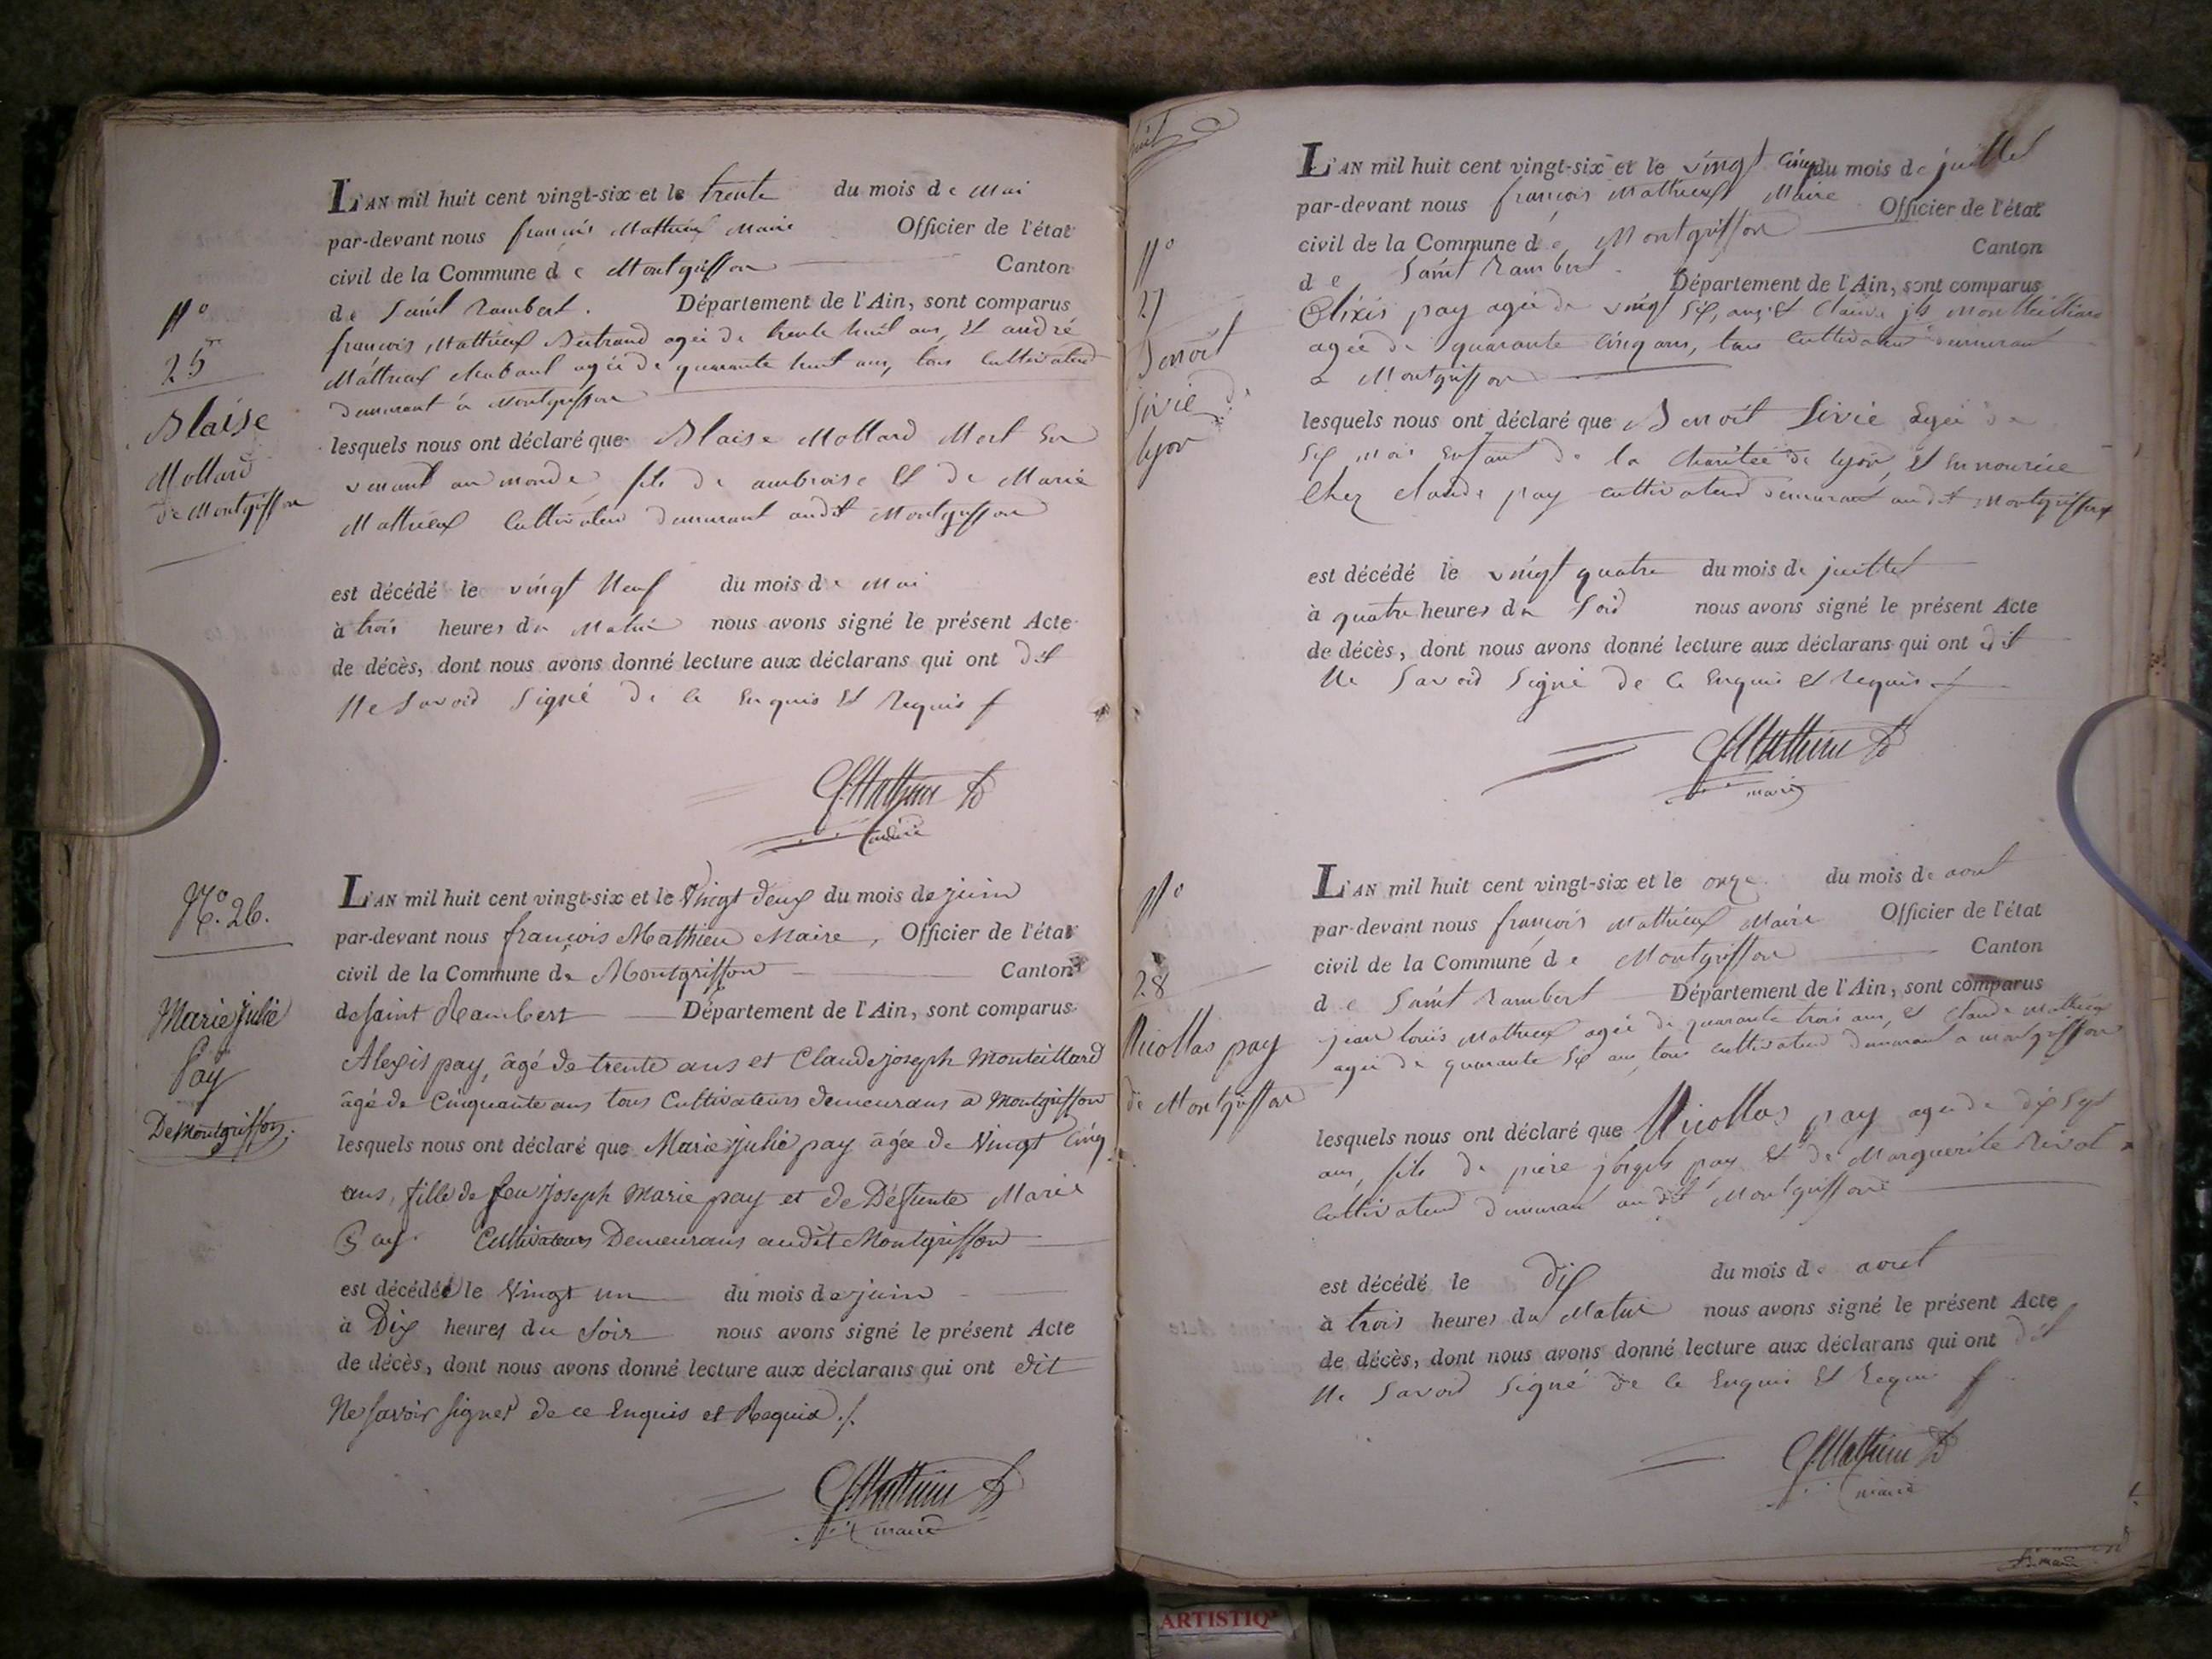 N°
25
Blaise
Mollard
de Montgriffon
L'AN mil huit cent vingt-six et le trente du mois de Mai
par-devant nous françois Mathieux Maire Officier de l'état
civil de la Commune de Montgriffon Canton
de Saint Rambert. Département de l'Ain, sont comparus
françois Mathieux Bertrand agée de trente huit ans, et andré
Mathieux Chabaut agée de quarante huit ans, tous Cultivateurs
demeurant à Montgriffon
lesquels nous ont déclaré que Blaise Mollard Mort En
venant au monde, fils de ambroise et de Marie
Mathieux Cultivateur demeurant audit Montgriffon
est décédé le vingt Neuf du mois de Mai
à trois heures du Matin nous avons signé le présent Acte
de décès, dont nous avons donné lecture aux déclarans qui ont dit
Ne Savoir Signé de ce Enquis Et Requis
Maire
N.° 26.
Marie Julie
Pay
De Montgriffon.
L'AN mil huit cent vingt-six et le Vingt deux du mois de juin
par-devant nous françois Mathieu Maire, Officier de l'état
civil de la Commune de Montgriffon Canton
de Saint Rambert Département de l'Ain, sont comparus
Alexis pay, âgé de trente ans et Claude joseph Monteillard
âgé de Cinquante ans tous Cultivateurs demeurans à Montgriffon
lesquels nous ont déclaré que Marie julie pay âgée de Vingt Cinq
ans, fille de feu joseph Marie pay et de Défunte Marie
Pay Cultivateurs Demeurans audit Montgriffon
est décédée le Vingt un du mois de juin
à Dix heures du Soir nous avons signé le présent Acte
de décès, dont nous avons donné lecture aux déclarans qui ont dit
Ne Savoir Signer de ce Enquis et Requis ./.
maire
huit
N°
27
Benoit
Livie de
lyon
L'AN mil huit cent vingt-six et le vingt Cinq du mois de juillet
par-devant nous françois Mathieux Maire Officier de l'état
civil de la Commune de Montgriffon Canton
de Saint Rambert Département de l'Ain, sont comparus
pay agée de vingt Six, ans, et Claude
agée de quarante Cinq ans, tous Cultivateur demeurant
a Montgriffon
lesquels nous ont déclaré que Benoit Livie agée de
Six mois Enfant de la Charitée de lyon, et En nourice
Chez Claude pay Cultivateur demeurant audit Montgriffon
est décédé le vingt quatre du mois de juillet
à quatre heures du Soir nous avons signé le présent Acte
de décès, dont nous avons donné lecture aux déclarans qui ont dit
Ne Savoir Signé de Ce Enquis et requis
maire
N°
28
Nicollas pay
de Montgriffon
L'AN mil huit cent vingt-six et le onze du mois de aout
par-devant nous françois Mathieux Maire Officier de l'état
civil de la Commune de Montgriffon Canton
de Saint Rambert Département de l'Ain, sont comparus
jean louis Mathieux agée de quarante trois ans, et Claude Mathieu
agée de quarante Six ans, tous Cultivateur demeurant a Montgriffon
lesquels nous ont déclaré que Nicollas pay agée de dix Sept
ans, fils de piere pay et de Marguerite
Cultivateur demeurant audit Montgriffon
est décédé le dix du mois de aout
à trois heures du Matin nous avons signé le présent Acte
de décès, dont nous avons donné lecture aux déclarans qui ont dit
Ne Savoir Signé de Ce Enquis Et Requis
maire
ARTISTIQ